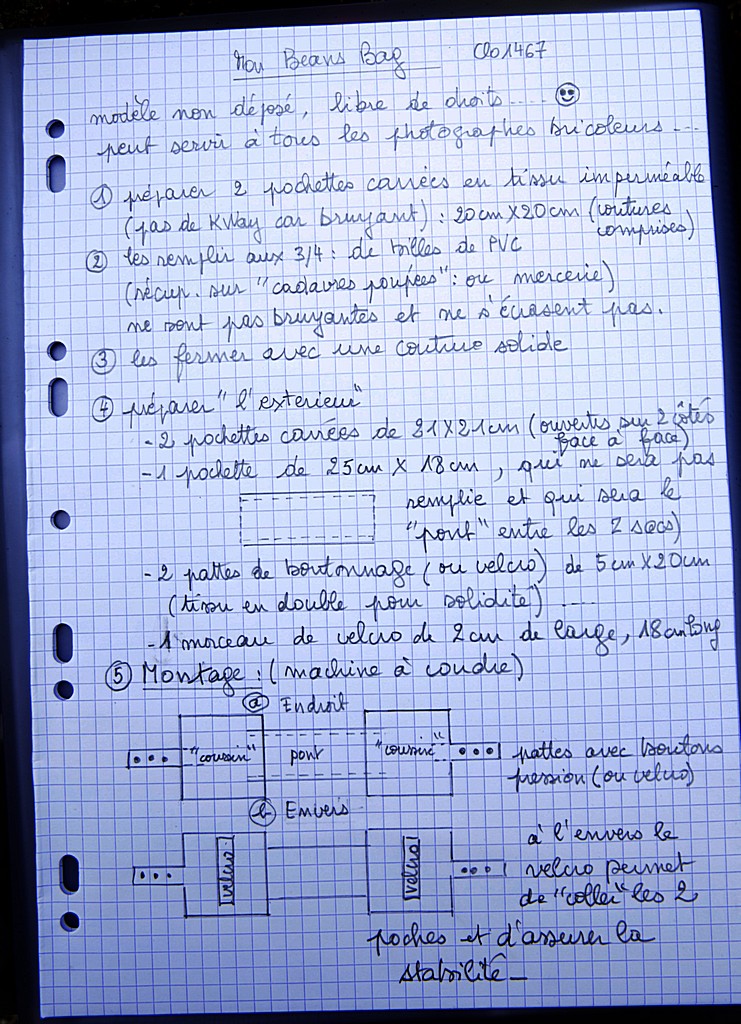 Mon Beans Bag Clo1467
modèle non déposé, libre de droits.... ☺
peut servir à tous les photographes bricoleurs...
① préparer 2 pochettes carrées en tissu imperméable
(pas de KWay car bruyant) : 20cm X 20cm (coutures
comprises)
② les remplir aux 3/4 : de billes de PVC
(récup. sur "cadavres poupées" : ou mercerie)
ne sont pas bruyantes et ne s'écrasent pas.
③ les fermer avec une couture solide
④ préparer "l'exterieur"
- 2 pochettes carrées de 21 X 21cm (ouvertes sur 2 côtés
face à face)
- 1 pochette de 25cm X 18cm, qui ne sera pas
remplie et qui sera le
"pont" entre les 2 sacs)
- 2 pattes de boutonnage (ou velcro) de 5cm X 20cm
(tissu en double pour solidité) ....
- 1 morceau de velcro de 2cm de large, 18cm long
⑤ Montage : (machine à coudre)
ⓐ Endroit
"coussin" pont "coussin" pattes avec boutons
pression (ou velcro)
ⓑ Envers
velcro velcro à l'envers le
velcro permet
de "coller" les 2
poches et d'assurer la
stabilité_